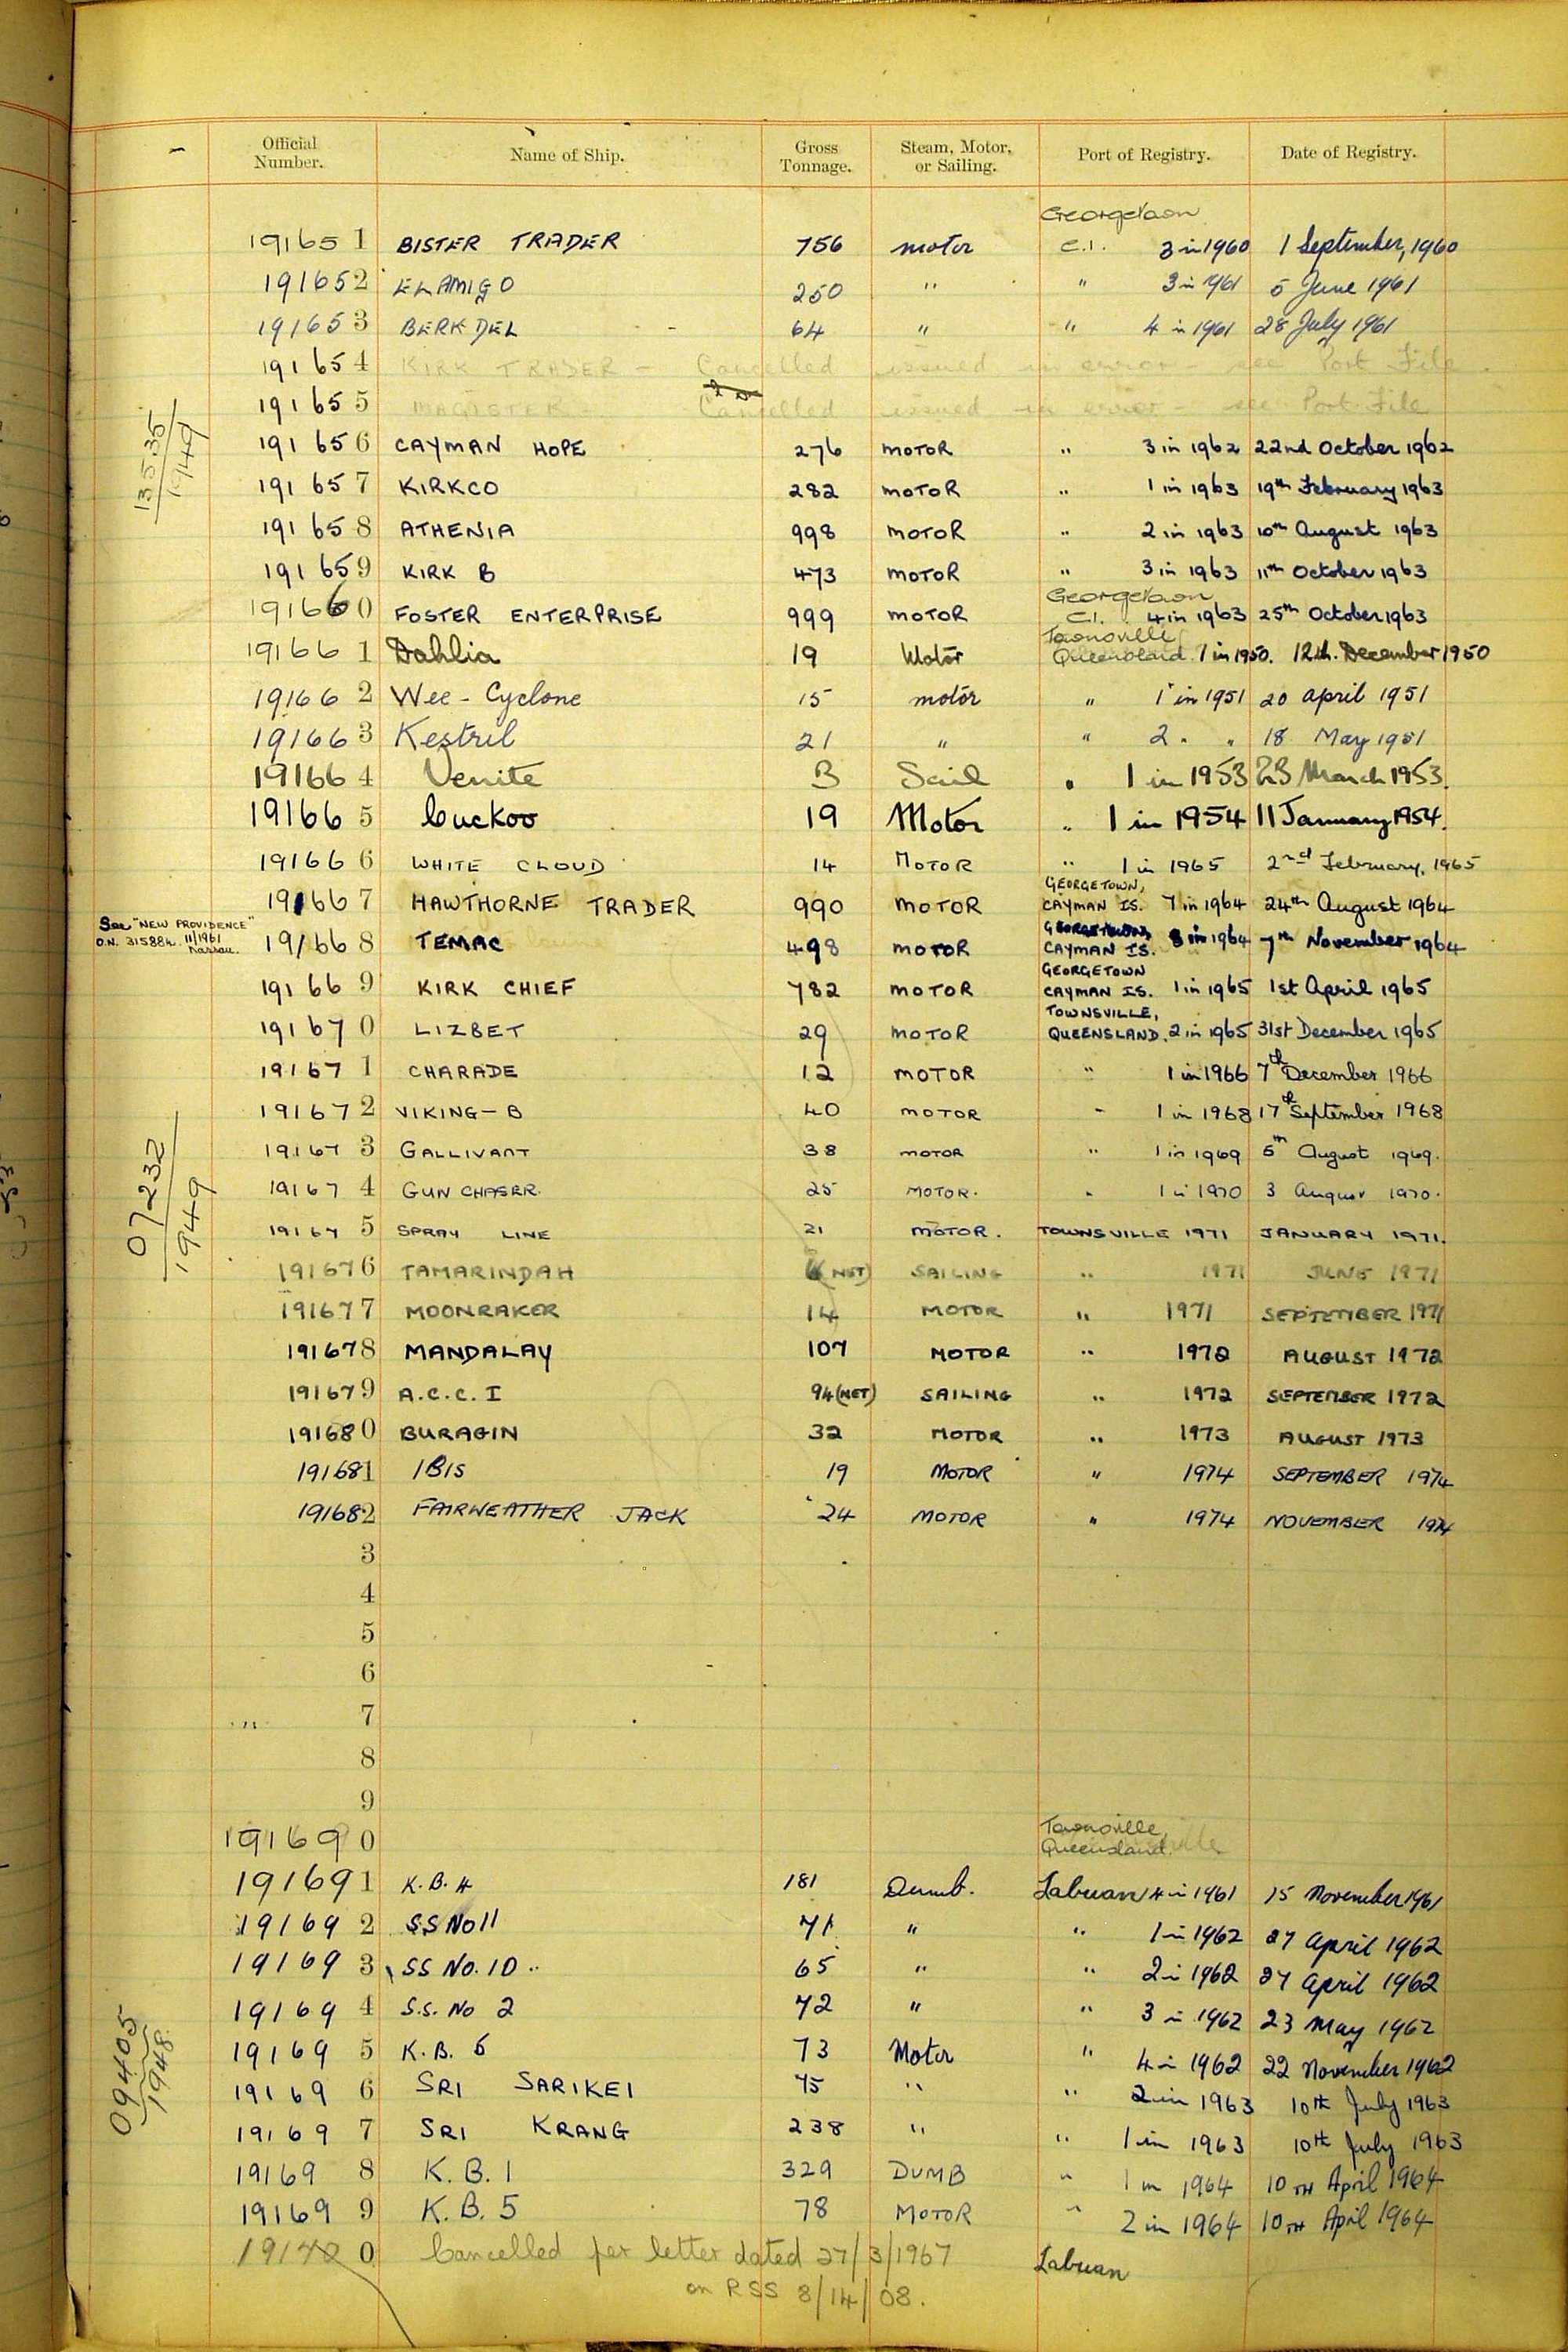 Official Number. Name of Ship. Gross Tonnage. Steam, Motor, or Sailing. Port of Registry. Date of Registry.
Georgetown
191651 BISTER TRADER 756 motor C.I. 3 in 1960 1 September, 1960
191652 ELAMIGO 250 " " 3 in 1961 5 June 1961
191653 BERKDEL 64 " " 4 in 1961 28 July 1961
191654 KIRK TRADER - Cancelled issued in error - see Port File.
191655 MAGISTER - Cancelled issued in error - see Port File
13535
1949
191656 CAYMAN HOPE 276 MOTOR " 3 in 1962 22nd October 1962
191657 KIRKCO 282 MOTOR " 1 in 1963 19th February 1963
191658 ATHENIA 998 MOTOR " 2 in 1963 10th August 1963
191659 KIRK B 473 MOTOR " 3 in 1963 11th October 1963
Georgetown
191660 FOSTER ENTERPRISE 999 MOTOR C.I. 4 in 1963 25th October 1963
Townsville
191661 Dahlia 19 Motor Queensland 1 in 1950. 12th. December 1950
191662 Wee - Cyclone 15 motor " 1 in 1951 20 April 1951
191663 Kestril 21 " " 2 " " 18 May 1951
191664 Venite B Sail " 1 in 1953 23 March 1953.
191665 Cuckoo 19 Motor " 1 in 1954 11 January 1954.
191666 WHITE CLOUD 14 MOTOR " 1 in 1965 2nd February, 1965
GEORGETOWN,
191667 HAWTHORNE TRADER 990 MOTOR CAYMAN IS. 7 in 1964 24th August 1964
See "NEW PROVIDENCE"
O.N. 315884. 11/1961
Nassau.
GEORGETOWN,
191668 TEMAC 498 MOTOR CAYMAN IS. 8 in 1964 7th November 1964
GEORGETOWN
191669 KIRK CHIEF 782 MOTOR CAYMAN IS. 1 in 1965 1st April 1965
TOWNSVILLE,
191670 LIZBET 29 MOTOR QUEENSLAND. 2 in 1965 31st December 1965
191671 CHARADE 12 MOTOR " 1 in 1966 7th December 1966
191672 VIKING-B 40 MOTOR " 1 in 1968 17th September 1968
07232
1949
191673 GALLIVANT 38 MOTOR " 1 in 1969 5th August 1969.
191674 GUN CHASER. 25 MOTOR. " 1 in 1970 3 August 1970.
191675 SPRAY LINE 21 MOTOR. TOWNSVILLE 1971 JANUARY 1971.
191676 TAMARINDAH (NET) SAILING " 1971 JUNE 1971
191677 MOONRAKER 14 MOTOR " 1971 SEPTEMBER 1971
191678 MANDALAY 107 MOTOR " 1972 AUGUST 1972
191679 A.C.C. I 94(NET) SAILING " 1972 SEPTEMBER 1972
191680 BURAGIN 32 MOTOR " 1973 AUGUST 1973
191681 IBIS 19 MOTOR " 1974 SEPTEMBER 1974
191682 FAIRWEATHER JACK 24 MOTOR " 1974 NOVEMBER 1974
3
4
5
6
7
8
9
Townsville,
191690 Queensland.
191691 K.B. 4 181 Dumb. Labuan 4 in 1961 15 November 1961
191692 SS No 11 71 " " 1 in 1962 27 April 1962
191693 SS No. 10 65 " " 2 in 1962 27 April 1962
191694 S.S. No 2 72 " " 3 in 1962 23 May 1962
09405
1948
191695 K.B. 6 73 Motor " 4 in 1962 22 November 1962
191696 SRI SARIKEI 75 " " 2 in 1963 10th July 1963
191697 SRI KRANG 238 " " 1 in 1963 10th July 1963
191698 K.B. 1 329 DUMB " 1 in 1964 10TH April 1964
191699 K.B. 5 78 MOTOR " 2 in 1964 10TH April 1964
191700 Cancelled per letter dated 27/3/1967 Labuan
on RSS 8/14/08.